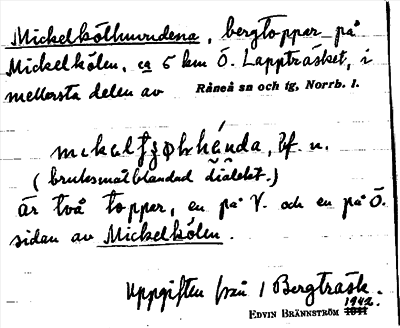 Mickelkölhuvudena, bergtoppar på
Mickelkölen, ca 5 km Ö. Lappträsket, i
mellersta delen av Råneå sn och tg, Norrb. l.
bf. n.
(bruksmålblandad dialekt.)
är två toppar, en på V. och en på Ö.
sidan av Mickelkölen.
Uppgiften från 1 Bergträsk.
EDVIN BRÄNNSTRÖM 1942.